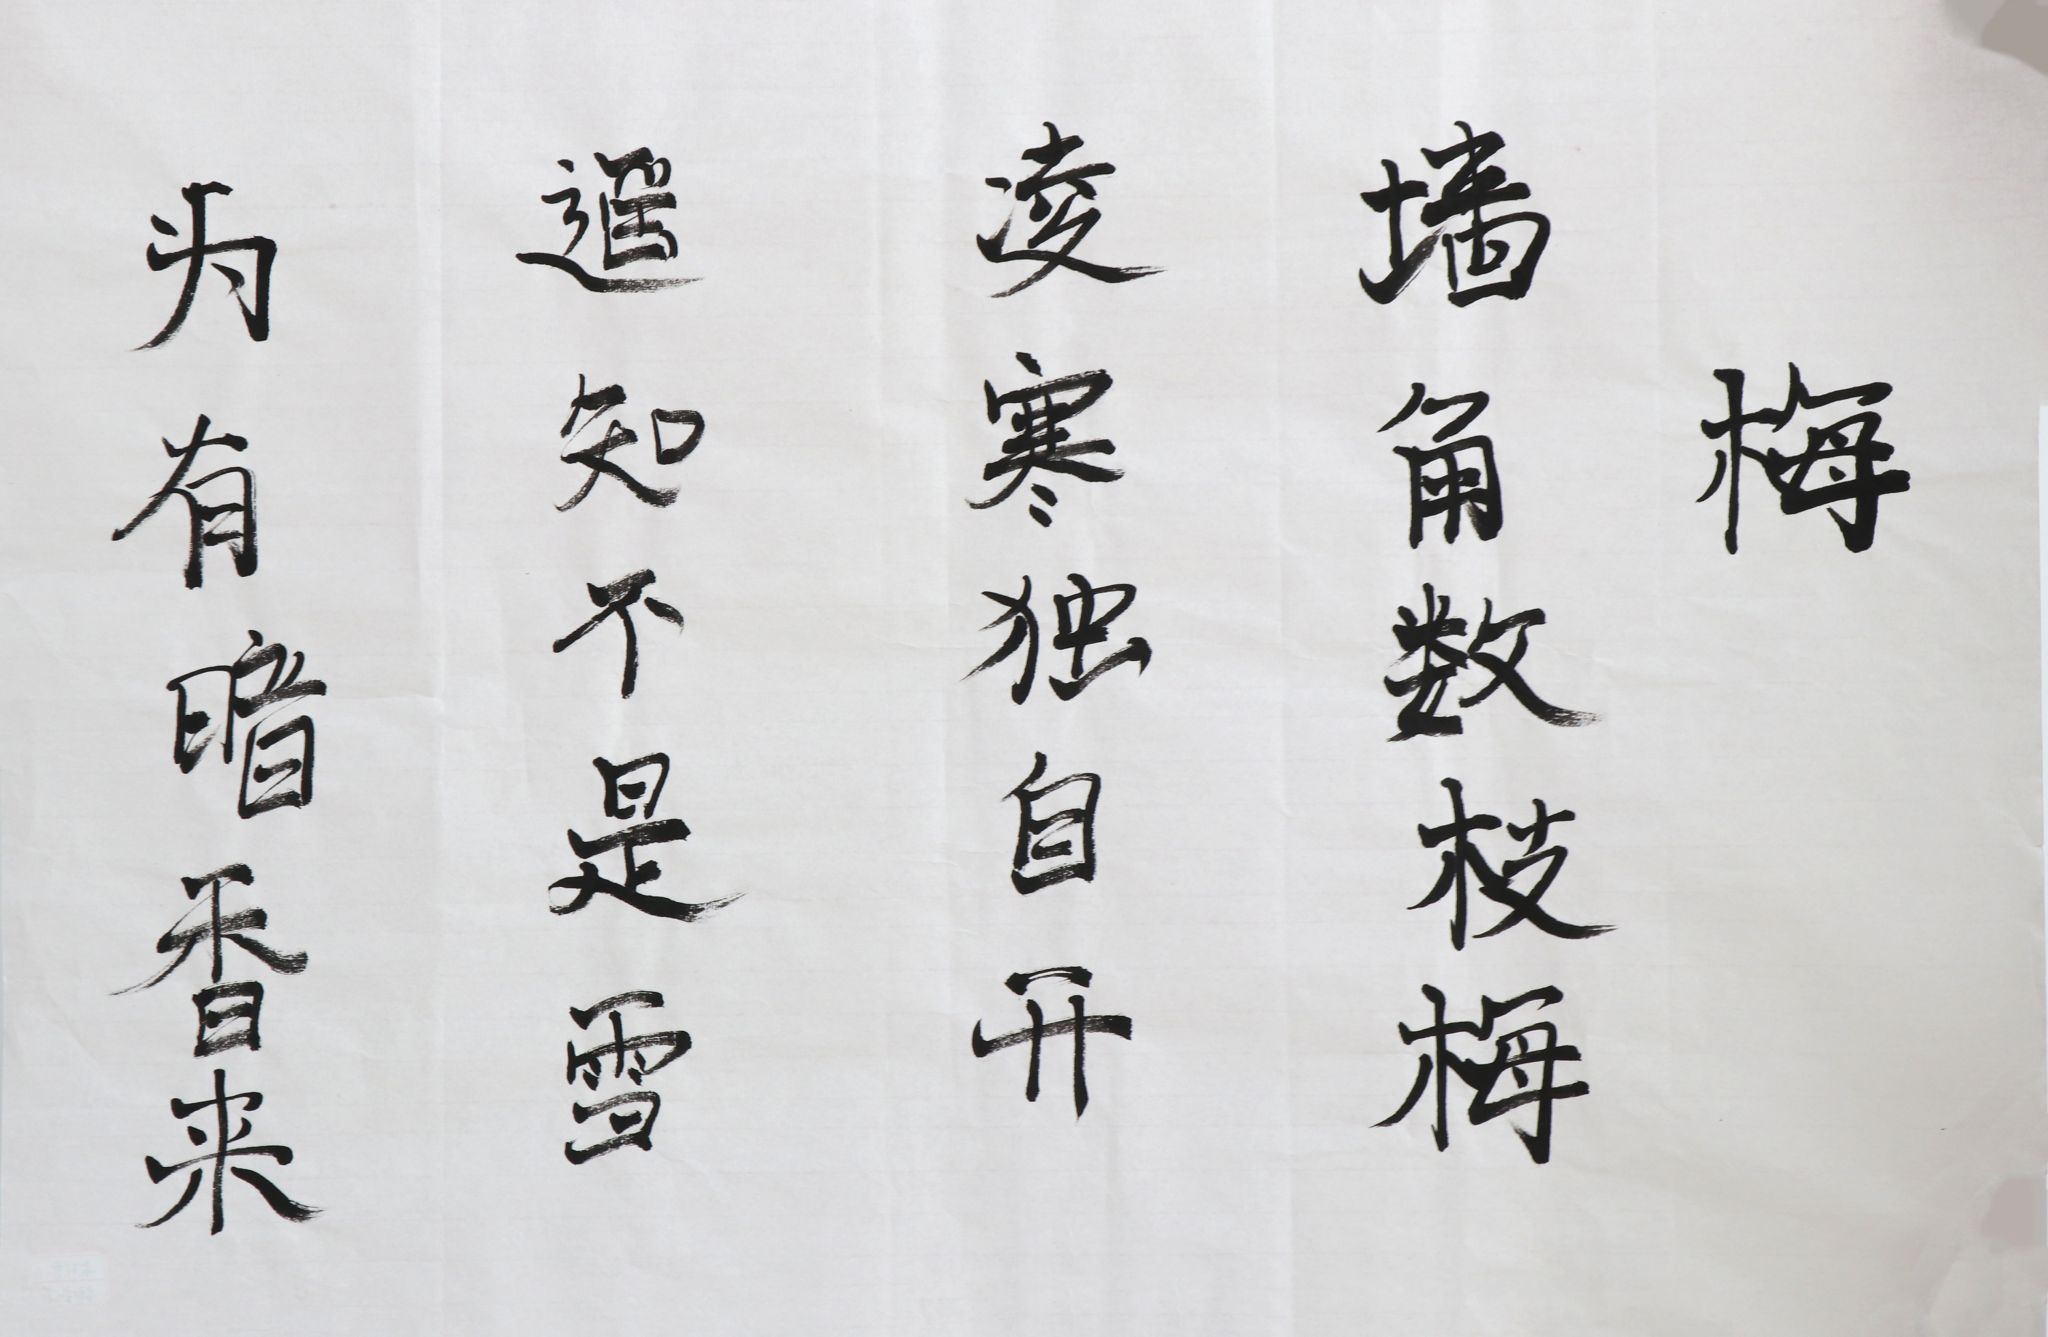 梅
墙角数枝梅
凌寒独自开
遥知不是雪
为有暗香来